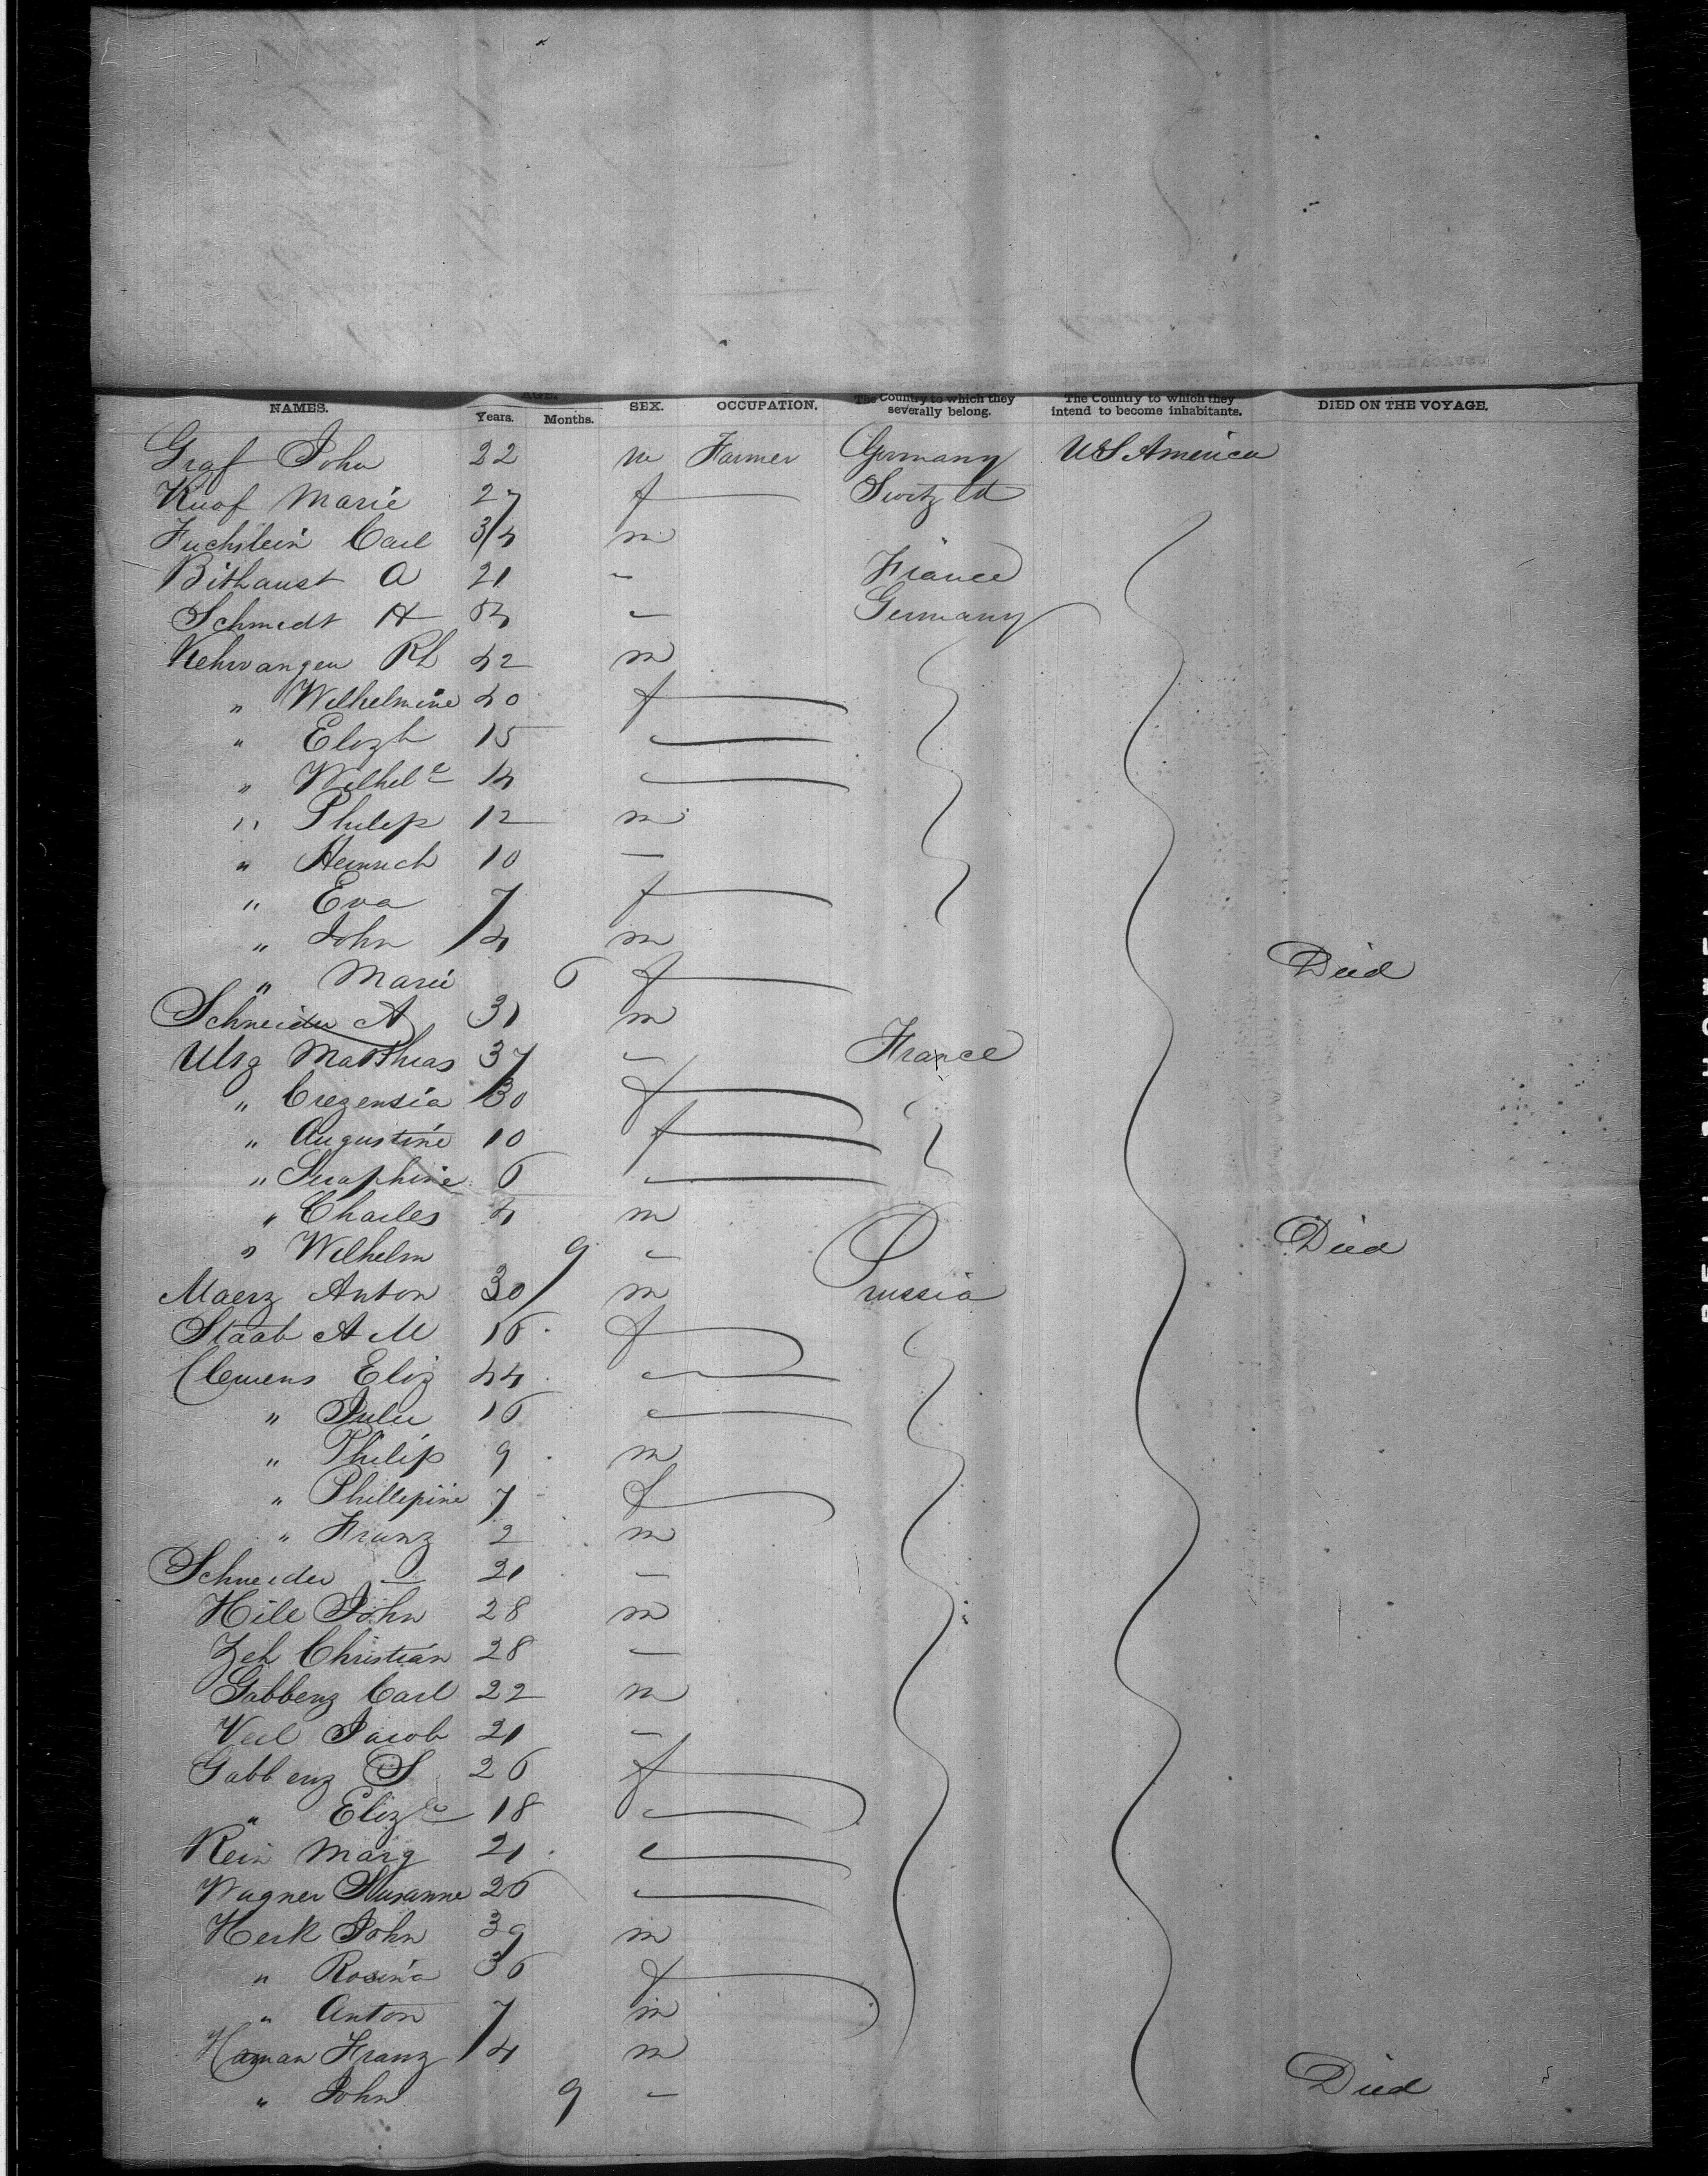 NAMES. AGE. Years. Months. SEX. OCCUPATION. The Country to which they severally belong. The Country to which they intend to become inhabitants. DIED ON THE VOYAGE.
Graf John 22 m Farmer Germany US America
Knof Marie 27 f Switzld
Fuchslein Carl 34 m
Bithaust A 21 - France
Schmidt H - Germany
Kehwangen Rh 42 m
" Wilhelmine 40 f
" Elizh 15
" Wilhele 14
" Philip 12 m
" Heinrich 10 -
" Eva 7 f
" John 4 m
" Marie 6 f Died
Schneider A 31 m
Ulrg Matthias 37 - France
" Crezensia 30 f
" Augustine 10 f
" Seraphine 6
" Charles 4 m
" Wilhelm 9 - Died
Maerz Anton 30 m Prussia
Staab A M 16 f
Clemens Eliz 44
" Julie 16
" Philip 9 m
" Phillipine 7 f
" Franz 2 m
Schneider — 21 -
Hill John 28 m
Zeh Christian 28 -
Gabbenz Carl 22 m
Veil Jacob 21 -
Gabbenz S 26 f
" Eliz 18
Rein Marg 21
Wagner Susanne 26
Herk John 39 m
" Rosina 36 f
" Anton 7 m
Haman Franz 4 m
" John 9 - Died